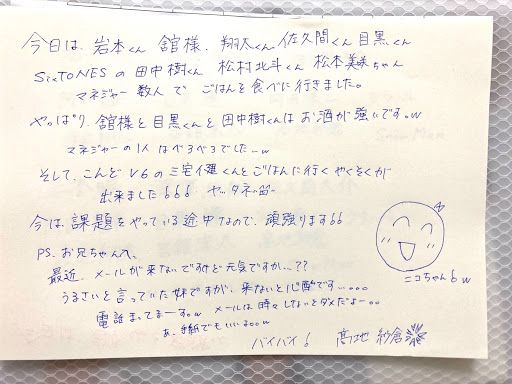 今日は、岩本くん 舘様、翔太くん 佐久間くん 目黒くん
SixTONESの田中樹くん 松村北斗くん 松本美咲ちゃん
マネジャー数人で ごはんを食べに行きました。
やっぱり、舘様と目黒くんと田中樹くんはお酒が強いです。w
マネジャーの1人はべろべろでした…w
そして、こんどV6の三宅健くんとごはんに行くやくそくが
出来ました
今は、課題をやっている途中なので、頑張ります
PS. お兄ちゃんへ、
最近、メールが来ないですけど元気ですか…??
うるさいと言っていた妹ですが、来ないと心配です…。。。
電話まってまーす。w メールは時々しないとダメだよー。。
あ、手紙でもいいよ。。w
ニコちゃん w
バイバイ! 髙地 紗倉